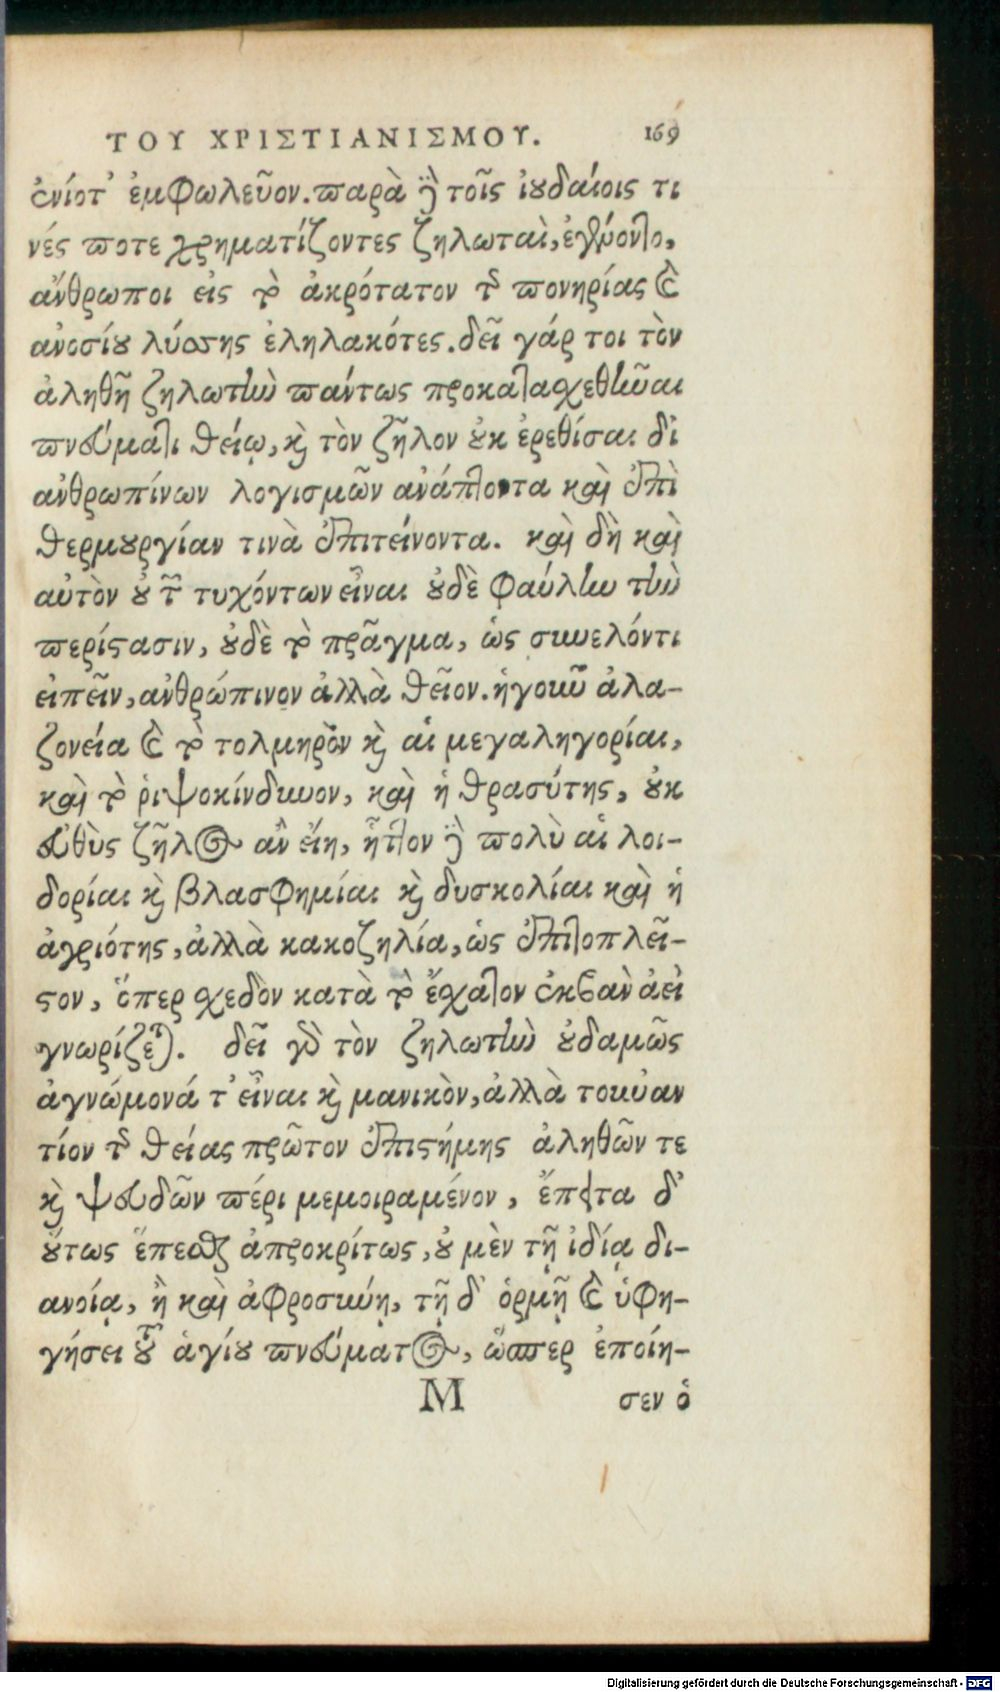 ΤΟΥ ΧΡΙΣΤΙΑΝΙΣΜΟΥ. 169
ἐνίοτ' ἐμφωλεῦον. παρὰ δὲ τοῖς ἰουδαίοις τι
νές ποτε χρηματίζοντες ζηλωταὶ, ἐγένοντο,
ἄνθρωποι εἰς τὸ ἀκρότατον τῆς πονηρίας καὶ
ἀνοσίου λύσσης ἐληλακότες. δεῖ γάρ τοι τὸν
ἀληθῆ ζηλωτὴν πάντως προκατασχεθῆναι
πνεύματι θείῳ, καὶ τὸν ζῆλον οὐκ ἐρεθίσαι δι
ἀνθρωπίνων λογισμῶν ἀνάπτοντα καὶ ἐπὶ
θερμουργίαν τινὰ ἐπιτείνοντα. καὶ δὴ καὶ
αὐτὸν οὐ τῶν τυχόντων εἶναι οὐδὲ φαύλην τὴν
περίστασιν, οὐδὲ τὸ πρᾶγμα, ὡς συνελόντι
εἰπεῖν, ἀνθρώπινον ἀλλὰ θεῖον. ἡγοῦν ἀλα-
ζονεία καὶ τὸ τολμηρὸν καὶ αἱ μεγαληγορίαι,
καὶ τὸ ῥιψοκίνδυνον, καὶ ἡ θρασύτης, οὐκ
εὐθὺς ζῆλος ἂν εἴη, ἧττον δὲ πολὺ αἱ λοι-
δορίαι καὶ βλασφημίαι καὶ δυσκολίαι καὶ ἡ
ἀγριότης, ἀλλὰ κακοζηλία, ὡς ἐπιτοπλεῖ-
στον, ὅπερ σχεδὸν κατὰ τὸ ἔσχατον ἐκβὰν ἀεὶ
γνωρίζεται. δεῖ γὰρ τὸν ζηλωτὴν οὐδαμῶς
ἀγνώμονά τ' εἶναι καὶ μανικὸν, ἀλλὰ τοὐναν
τίον τῆς θείας πρῶτον ἐπιστήμης ἀληθῶν τε
καὶ ψευδῶν πέρι μεμοιραμένον, ἔπειτα δ'
οὕτως ἕπεσθαι ἀπροκρίτως, οὐ μὲν τῇ ἰδίᾳ δι-
ανοίᾳ, ἢ καὶ ἀφροσύνῃ, τῇ δ' ὁρμῇ καὶ ὑφη-
γήσει τοῦ ἁγίου πνεύματος, ὥσπερ ἐποίη-
Μ σεν ὁ
Digitalisierung gefördert durch die Deutsche Forschungsgemeinschaft - DFG